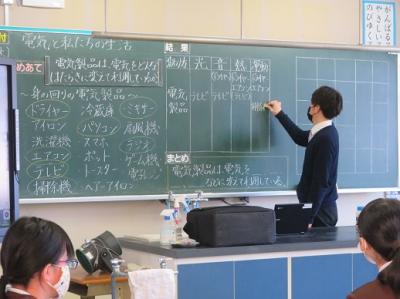 電気と私たちの生活
めあて
電気製品は、電気をどんな
はたらきに変えて利用しているのか。
〜身の回りの電気製品〜
ドライヤー 冷蔵庫 ミキサー
アイロン パソコン 扇風機
洗濯機 スマホ ラジオ
エアコン ポット ゲーム機
テレビ トースター 電子レンジ
掃除機 ヘアーアイロン
結果
光 音 熱 運動
電気
製品
テレビ テレビ
まとめ
電気製品は、電気を
などに変えて利用している。
がんばる
やさしい
のびゆく